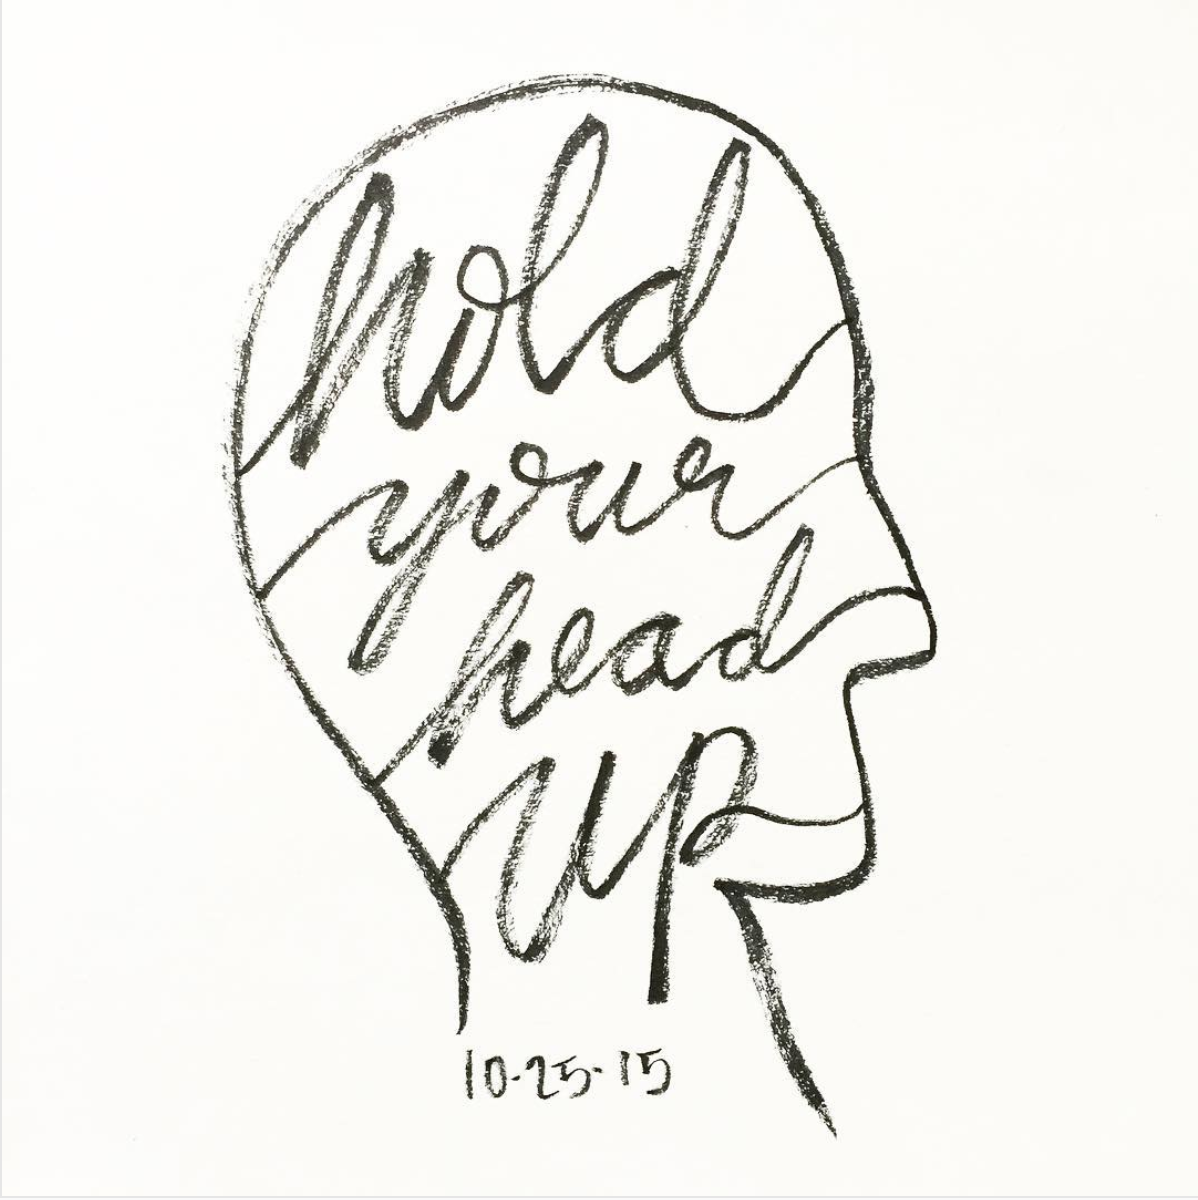 hold
your
head
up
10.25.15